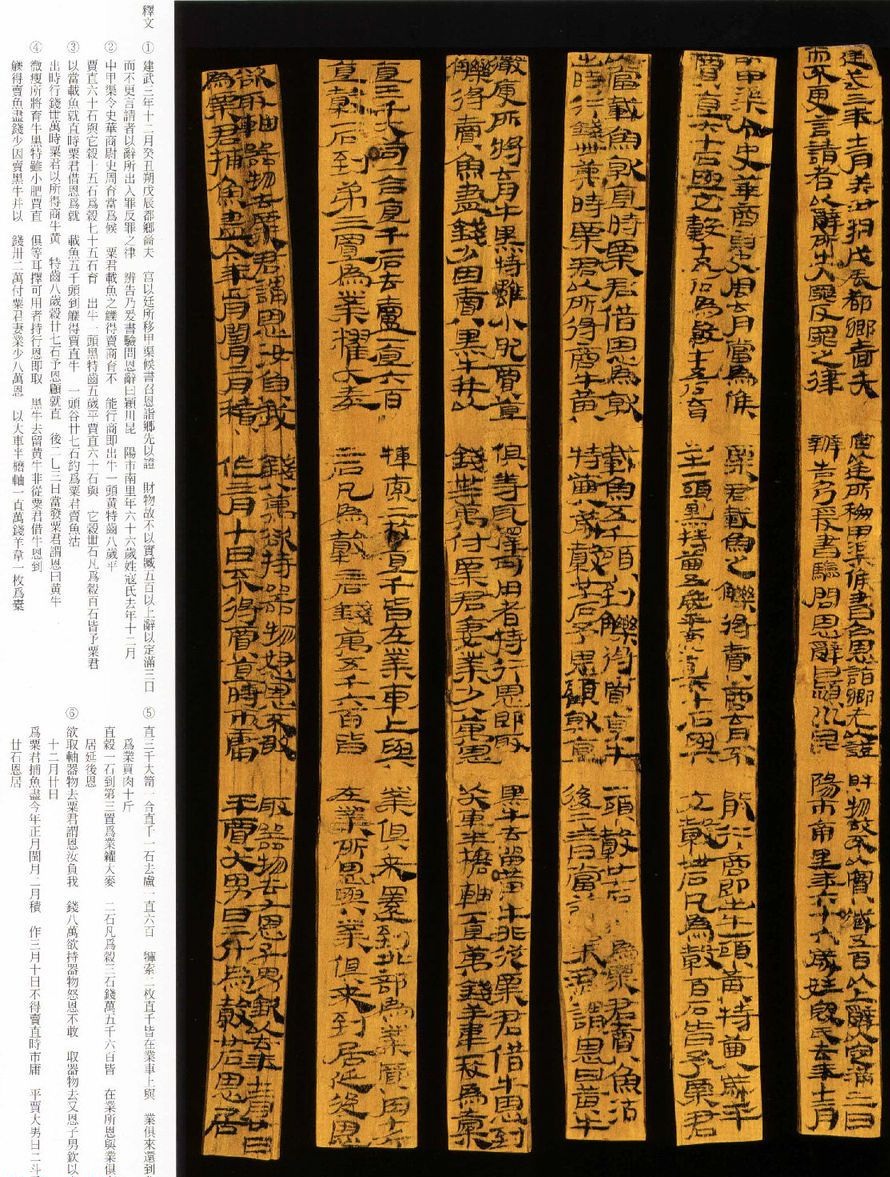 建武三年十二月癸丑朔戊辰都鄉嗇夫 宮以廷所移甲渠候書召恩詣鄉先以證 財物故不以實臧五百以上辭以定滿三日
而不更言請者以辭所出入罪反罪之律 辨告乃爰書驗問恩辭曰潁川昆 陽市南里年六十六歲姓寇氏去年十二月
中甲渠令史華商尉史周育當爲候 粟君載魚之觻得賣商育不 能行商即出牛一頭黃特齒八歲平
賈直六十石與它穀十五石爲穀七十五石育 出牛一頭黑特齒五歲平賈直六十石與 它穀卌石凡爲穀百石皆予粟君
以當載魚就直時粟君借恩爲就 載魚五千頭到觻得賈直牛 一頭穀廿七石 爲粟君賣魚沽
出時行錢卌萬時粟君以所得商牛黃 特齒八歲穀廿七石予恩顧就直 後二三日當發粟君謂恩曰黃牛
微庾所將育牛黑特雖小肥賈直 俱等耳擇可用者持行恩即取 黑牛去留黃牛非從粟君借牛恩到
觻得賣魚盡錢少因賣黑牛并以 錢卅二萬付粟君妻業少八萬恩 以大車半軸一直萬錢羊韋一枚爲橐
直三千大笥一合直千一石去盧一直六百 索二枚直千皆在業車上與 業俱來還到北部爲業買肉十斤
直穀一石到弟三置爲業糴大麥 二石凡爲穀三石錢萬五千六百皆 在業所恩與業俱來到居延後恩
欲取軸器物去粟君謂恩汝負我 錢八萬欲持器物怒恩不敢 取器物去又恩子男欽以去年十二月廿日
爲粟君捕魚盡今年正月閏月二月積 作三月十日不得賈直時市庸 平賈大男日二斗爲穀廿石恩居
釋文
① 建武三年十二月癸丑朔戊辰都鄉嗇夫 宮以廷所移甲渠候書召恩詣鄉先以證 財物故不以實臧五百以上辭以定滿三日
而不更言請者以辭所出入罪反罪之律 辨告乃爰書驗問恩辭曰潁川昆 陽市南里年六十六歲姓寇氏去年十二月
② 中甲渠令史華商尉史周育當爲候 粟君載魚之觻得賣商育不 能行商即出牛一頭黃特齒八歲平
賈直六十石與它穀十五石爲穀七十五石育 出牛一頭黑特齒五歲平賈直六十石與 它穀卌石凡爲穀百石皆予粟君
③ 以當載魚就直時粟君借恩爲就 載魚五千頭到觻得賈直牛 一頭谷廿七石約爲粟君賣魚沽
出時行錢卌萬時粟君以所得商牛黃 特齒八歲穀廿七石予恩顧就直 後二三日當發粟君謂恩曰黃牛
④ 微瘦所將育牛黑特雖小肥賈直 俱等耳擇可用者持行恩即取 黑牛去留黃牛非從粟君借牛恩到
觻得賣魚盡錢少因賣黑牛并以 錢卅二萬付粟君妻業少八萬恩 以大車半軸一直萬錢羊韋一枚爲橐
⑤ 直三千大笥一合直千一石去盧一直六百 索二枚直千皆在業車上與 業俱來還到
爲業買肉十斤
直穀一石到第三置爲業糴大麥 二石凡爲穀三石錢萬五千六百皆 在業所恩與業俱
居延後恩
⑥ 欲取軸器物去粟君謂恩汝負我 錢八萬欲持器物怒恩不敢 取器物去又恩子男欽以
十二月廿日
爲粟君捕魚盡今年正月閏月二月積 作三月十日不得賣直時市庸 平賈大男日二斗
廿石恩居